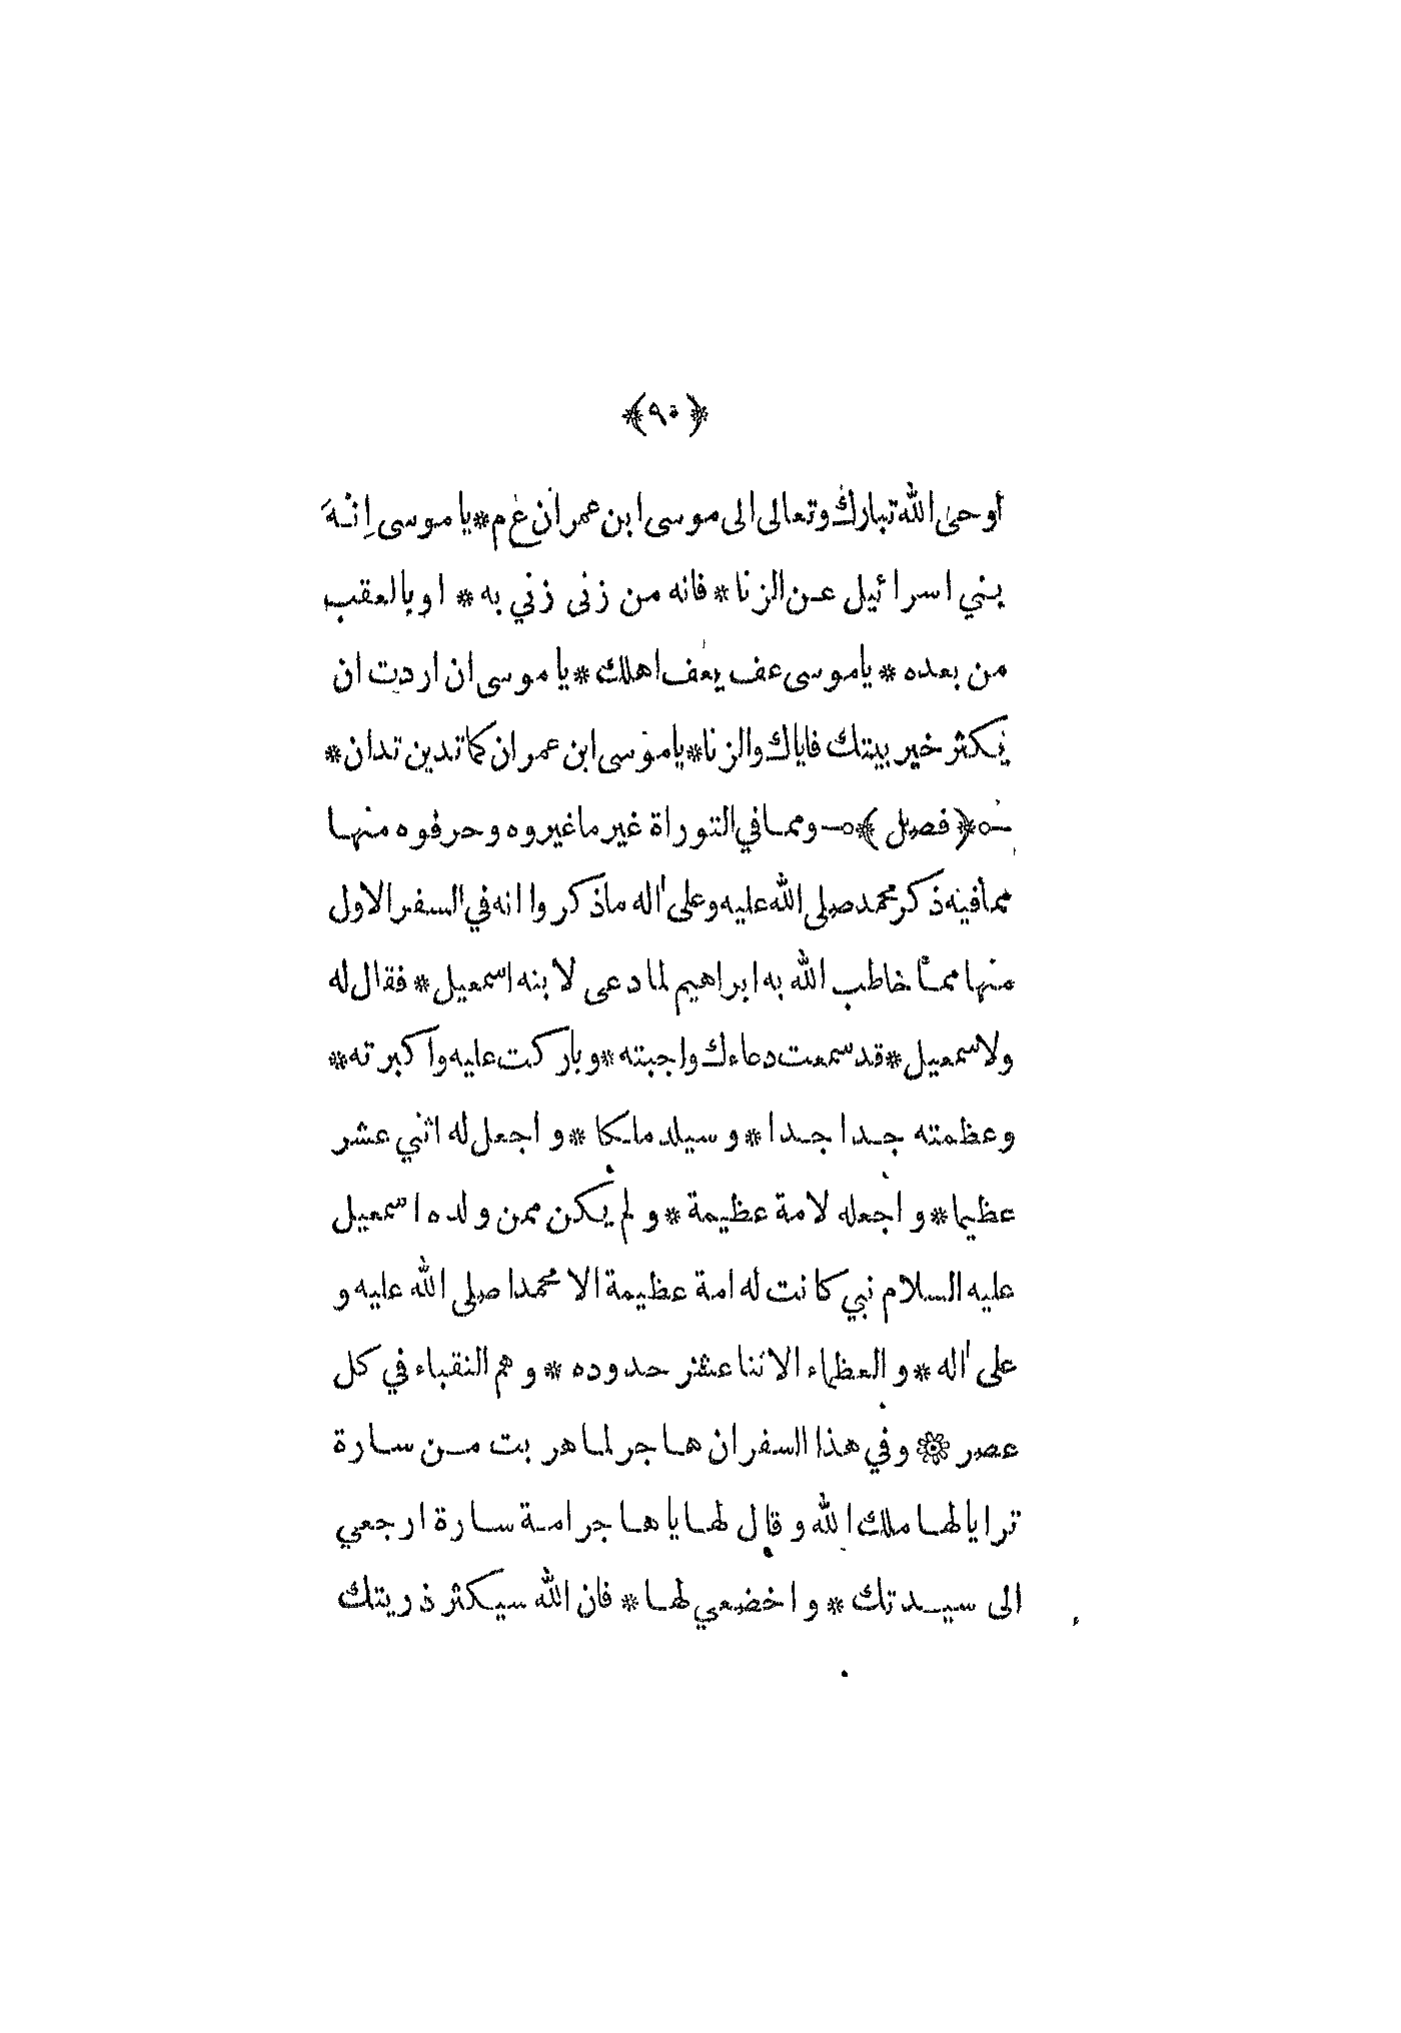 ﴿٩٠﴾
أوحى الله تبارك وتعالى الى موسى ابن عمران ع م * يا موسى اِنْهَ
بني اسرائيل عن الزنا * فانه من زنى زني به * او بالعقب
من بعده * ياموسى عف يعف اهلك * يا موسى ان اردت ان
يكثر خير بيتك فاياك والزنا * ياموسى ابن عمران كما تدين تدان *
﴿ فصل ﴾ ومما في التوراة غير ماغيروه وحرفوه منها
مما فيه ذكر محمد صلى الله عليه وعلى اله ماذكروا انه في السفر الاول
منها مما خاطب الله به ابراهيم لما دعى لابنه اسمعيل * فقال له
ولاسمعيل * قد سمعت دعاءك واجبته * وباركت عليه واكبرته *
وعظمته جدا جدا * وسيلد ملكا * واجعل له اثني عشر
عظيما * واجعله لامة عظيمة * ولم يكن ممن ولده اسمعيل
عليه السلام نبي كانت له امة عظيمة الا محمدا صلى الله عليه و
على اله * والعظماء الاثنا عشر حدوده * وهم النقباء في كل
عصر * وفي هذا السفر ان هاجر لما هربت من سارة
ترايا لها ملك الله وقال لها يا هاجر امة سارة ارجعي
الى سيدتك * واخضعي لها * فان الله سيكثر ذريتك